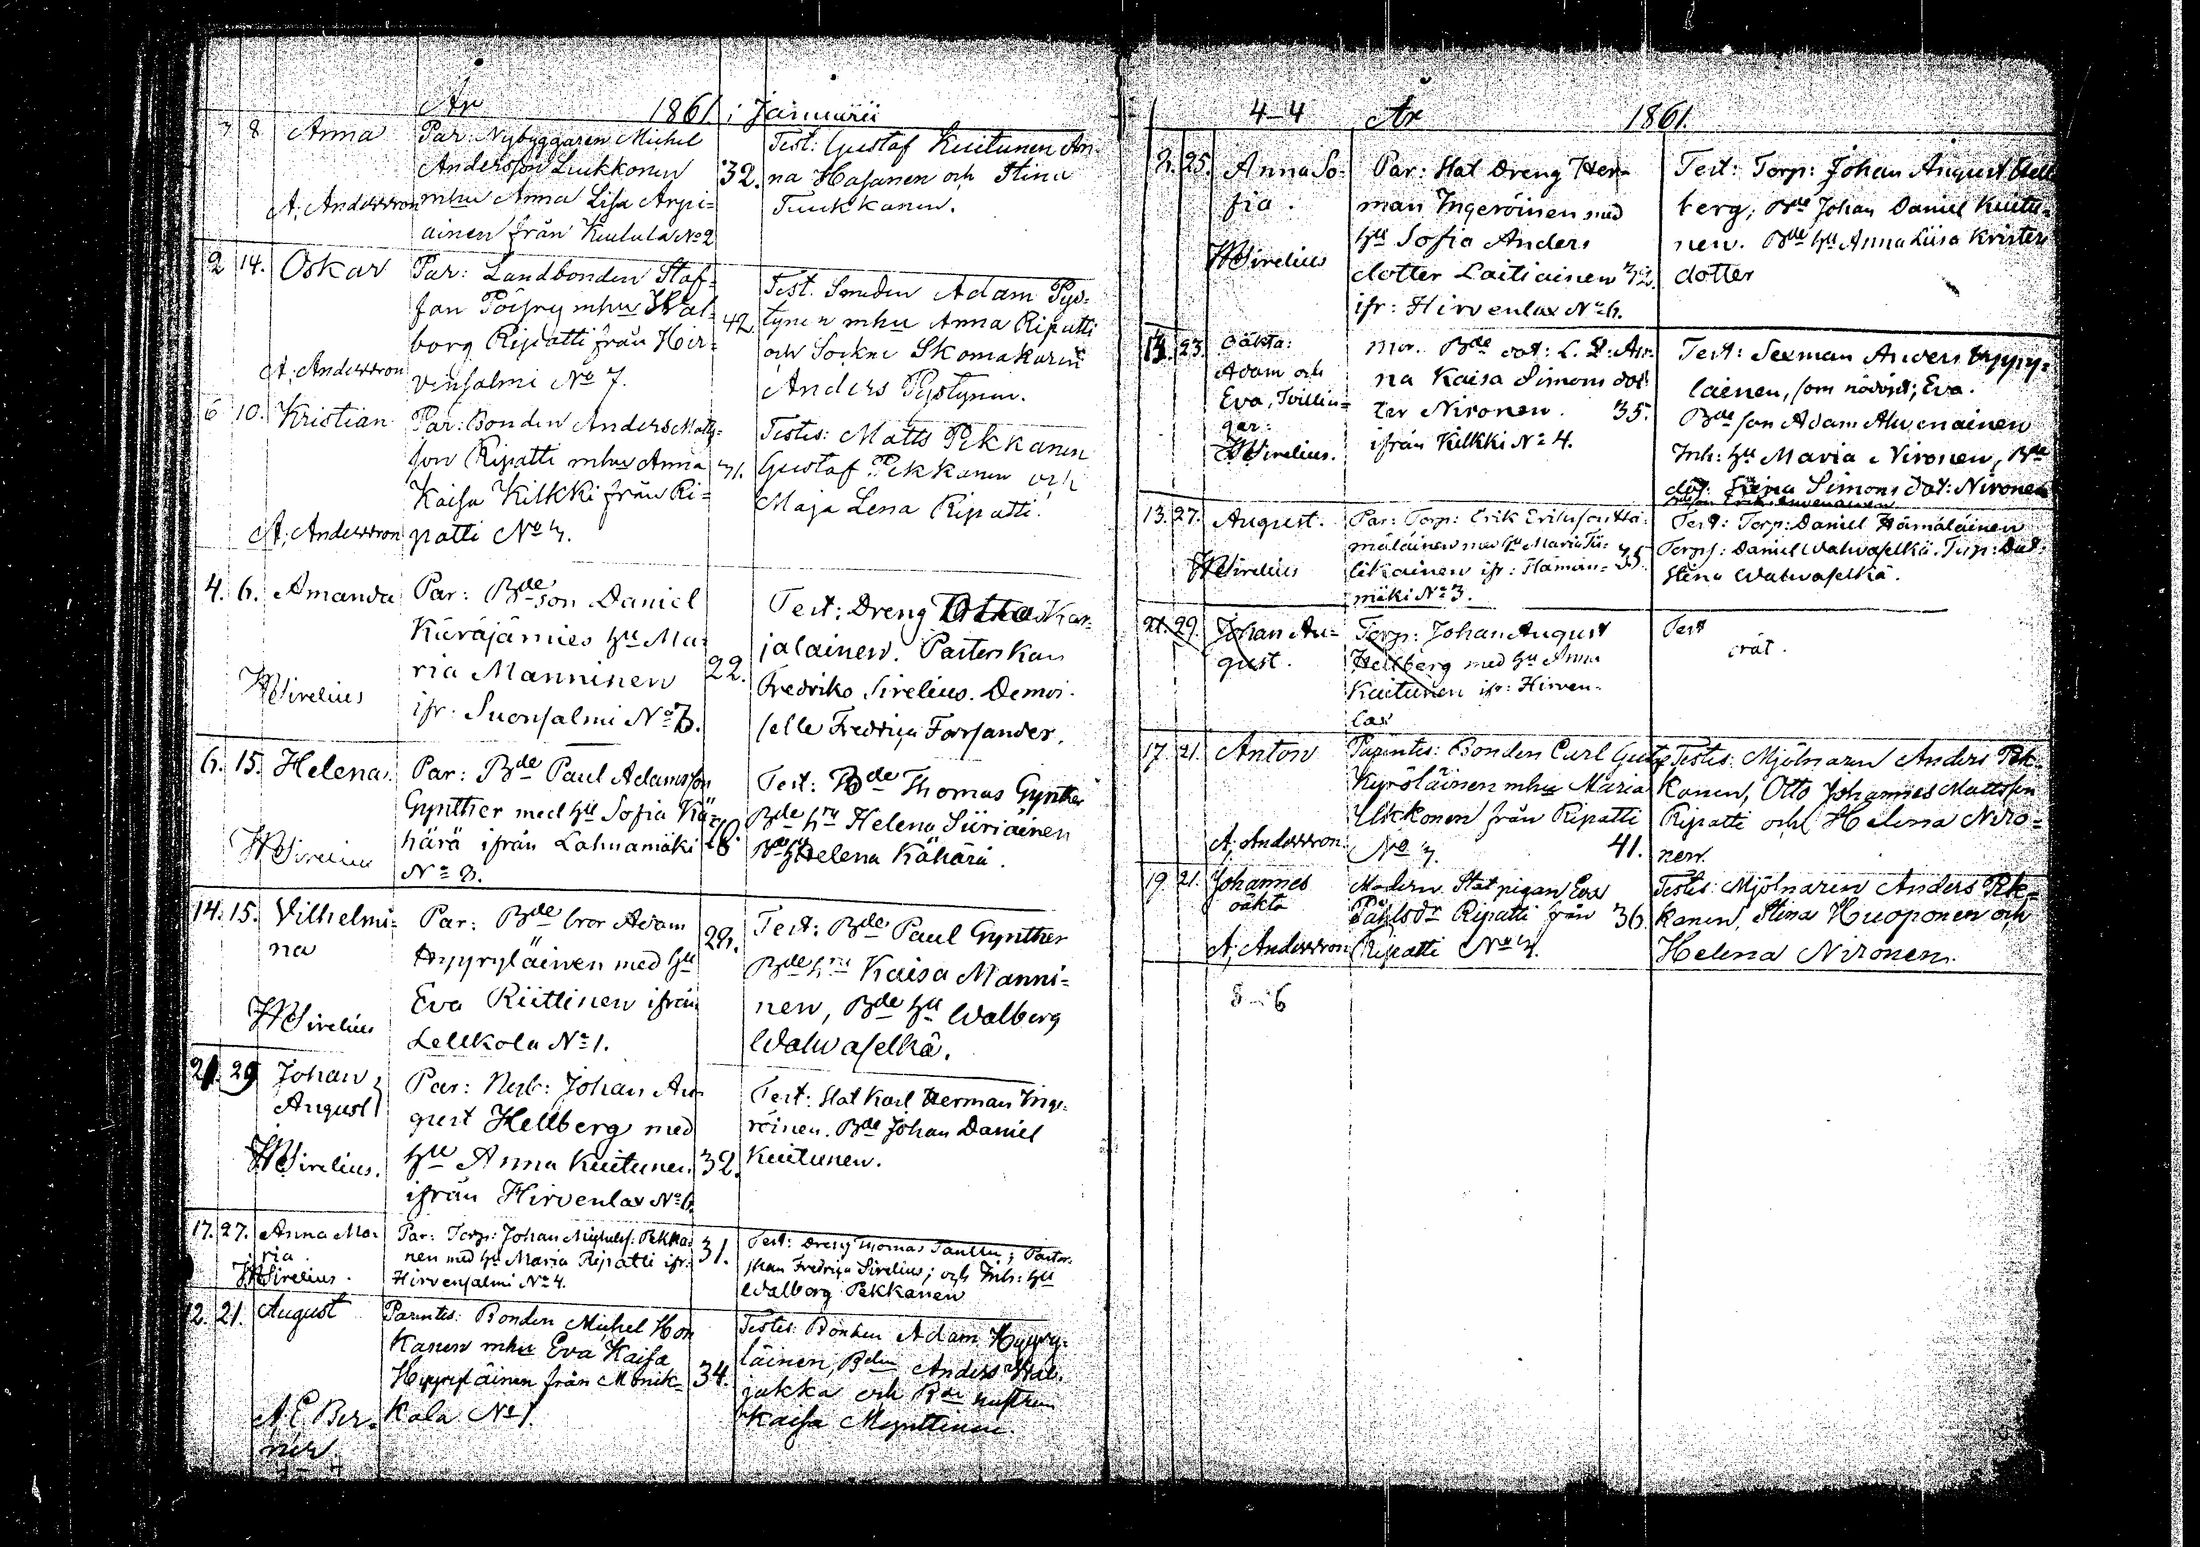 År 1861 i Januarii
7 8 Anna
Par: Nybyggaren Michel
Andersson Lukkonen
mhu Anna Lisa Arpi=
ainen från Kuitula No 2
A; Andersson
32.
Test: Gustaf Kuitunen An-
na Hasanen och Stina
Tuukkanen.
2 14. Oskar
Par: Landbonden Staf-
fan Pöyry mhu Wal-
borg Ripatti från Hir=
vensalmi No 7.
A; Andersson
42.
Test. Smeden Adam Pys-
tynen mhu Anna Ripatti
och Sockne Skomakaren
Anders Pystynen.
6 10. Kristian
Par: Bonden Anders Matts-
son Ripatti mhu Anna
Kaisa Kilkki från Ri=
patti No 7.
A; Andersson
31.
Testis: Matts Pekkanen
Gustaf Pekkanen och
Maja Lena Ripatti.
4. 6. Amanda
Par: Bde son Daniel
Käräjämies hu Ma-
ria Manninen
ifr. Suonsalmi No 3.
W Sirelius
22.
Test: Dreng Otto Kar-
jalainen. Pastorskan
Fredrika Sirelius. Demoi-
selle Fredriqa Forsander.
6. 15. Helena
Par: Bde Paul Adamsson
Gynther med hu Sofia Kä-
härä ifrån Lahnamäki
No 3.
W Sirelius
28.
Test: Bde Thomas Gynther
Bde hru Helena Siiriäinen
Bde hu Helena Kähärä.
14. 15. Vilhelmi-
na
Par: Bde bror Adam
Hyyryläinen med hu
Eva Riittinen ifrån
Lellkola No 1.
W Sirelius
28.
Test: Bde Paul Gynther
Bde hru Kaisa Manni=
nen, Bde hu Walberg
Wahvaselkä.
21. 29 Johan
August
Par: Nyb: Johan Au-
gust Hellberg med
hu Anna Kuitunen
ifrån Hirvenlax No 6.
W Sirelius.
32.
Test: Stat Karl Herman Inge-
röinen. Bde Johan Daniel
Kuitunen.
17. 27. Anna Ma-
ria.
Par: Torp: Johan Michelss: Pekka-
nen med hu Maria Ripatti ifr:
Hirvensalmi No 4.
W Sirelius.
31.
Test: Dreng Thomas Tanttu; Pastor-
skan Fredriqa Sirelius; och Inh: hu
Walborg Pekkanen
12. 21. August
Parentes: Bonden Michel Hon
kanen mhu Eva Kaisa
Hyyryläinen från Monik-
kala No 1.
A. E. Ber-
ner
34.
Testes: Bonden Adam Hyyry-
läinen, Bden Anders Wal-
jakka och Bde hustrun
Kaisa Mynttinen.
4-4 År 1861.
2. 25. Anna So-
fia.
Par: Stat Dreng Her-
man Ingeröinen med
hu Sofia Anders
dotter Laitiainen 32.
ifr: Hirvenlax No 6.
W Sirelius
Test: Torp: Johan August Hell
berg; Bde Johan Daniel Kuitu-
nen. Bde hu Anna Liisa Krister
dotter
14. 23. Oäkta:
Adam och
Eva, Tvillin=
gar.
W Sirelius.
Mor. Bde dot: L. S: An-
na Kaisa Simons dot
ter Nironen. 35.
ifrån Kilkki No 4.
Test: Sexman Anders Hyyry-
läinen, som nöddöpt; Eva.
Bde son Adam Ahvenainen
Inh: hu Maria Nironen, Bde
dot: Stina Simons dot: Nironen
13. 27. August.
Par: Torp: Erik Eriksson Hä-
mäläinen med hu Maria Tii-
likainen ifr: Hämän- 35
mäki No 3.
W Sirelius
Test: Torp: Daniel Hämäläinen
Torps: Daniel Wahvaselkä. Torp: Dot:
Stina Wahvaselkä.
21. 29. Johan Au-
gust.
Torp: Johan August
Hellberg med hu Anna
Kuitunen ifr: Hirven-
lax
Test
orät.
17. 21. Anton
Parentes: Bonden Carl Gust:
Kyröläinen mhu Maria
Ukkonen från Ripatti
No 7. 41.
A; Andersson.
Testis: Mjölnaren Anders Pek-
kanen, Otto Johannes Mattsson
Ripatti och Helena Niro=
nen.
19. 21. Johannes
oäkta
Modern Stat pigan Eva
Påhlsdr Ripatti från 36.
Ripatti No 7.
A; Andersson
Testis: Mjölnaren Anders Pek-
kanen, Stina Huoponen och
Helena Nironen.
8-6